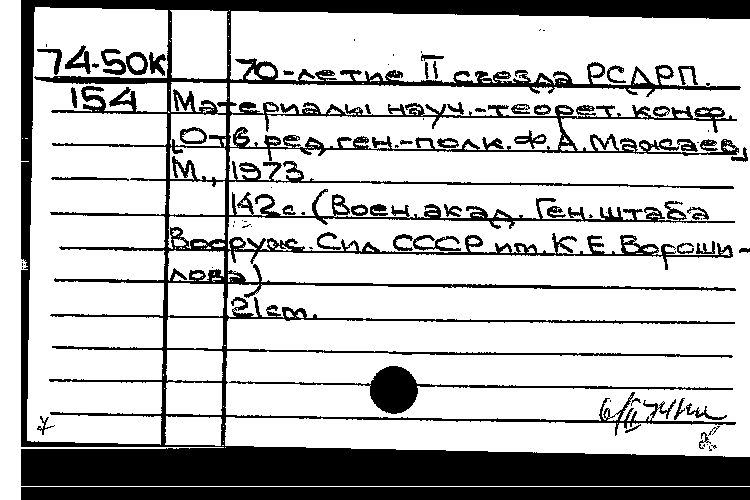 74-50К 70-летие II съезда РСДРП.
154 Материалы науч.-теорет. конф.
[Отв. ред. ген.-полк. Ф.А. Мажаев]
М., 1973.
142с. (Воен. акад. Ген. штаба
Вооруж. Сил СССР им. К.Е. Вороши-
лова)
21см.